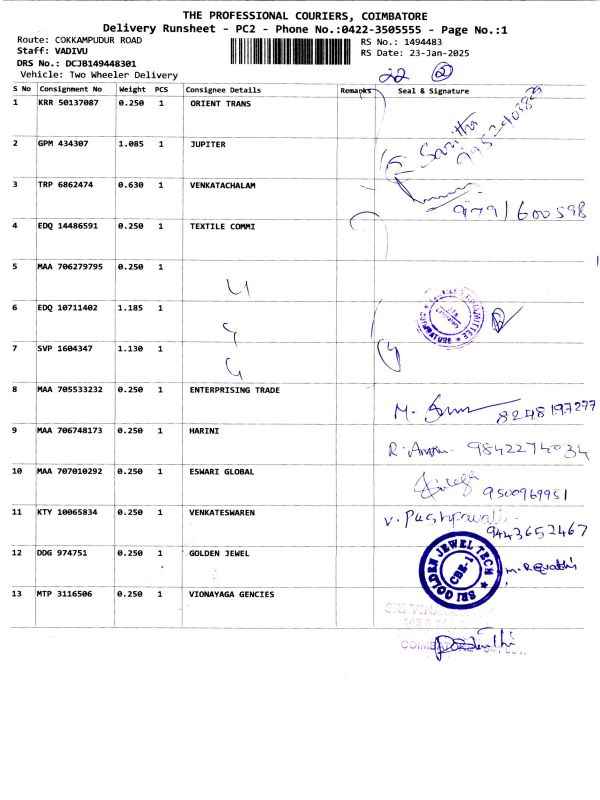 THE PROFESSIONAL COURIERS, COIMBATORE
Delivery Runsheet - PC2 - Phone No.:0422-3505555 - Page No.:1
Route: COKKAMPUDUR ROAD
RS No.: 1494483
Staff: VADIVU
RS Date: 23-Jan-2025
DRS No.: DCJB149448301
Vehicle: Two Wheeler Delivery
22 2
S No Consignment No Weight PCS Consignee Details Remarks Seal & Signature
1 KRR 50137087 0.250 1 ORIENT TRANS
Saritha
2 GPM 434307 1.085 1 JUPITER
3 TRP 6862474 0.630 1 VENKATACHALAM
9791600598
4 EDQ 14486591 0.250 1 TEXTILE COMMI
5 MAA 706279795 0.250 1
6 EDQ 10711402 1.185 1
7 SVP 1604347 1.130 1
8 MAA 705533232 0.250 1 ENTERPRISING TRADE
8248197277
9 MAA 706748173 0.250 1 HARINI
9842274034
10 MAA 707010292 0.250 1 ESWARI GLOBAL
9500969951
11 KTY 10065834 0.250 1 VENKATESWAREN
V. Pushpavalli
9443652467
12 DDG 974751 0.250 1 GOLDEN JEWEL
SRI GOLDEN JEWEL TECH
CBE-1
M. Revathi
13 MTP 3116506 0.250 1 VIONAYAGA GENCIES